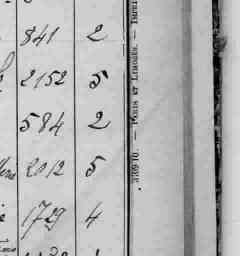 841 2
2152 5
584 2
2012 5
1729 4
339910. — PARIS ET LIMOGES. — IMPRI